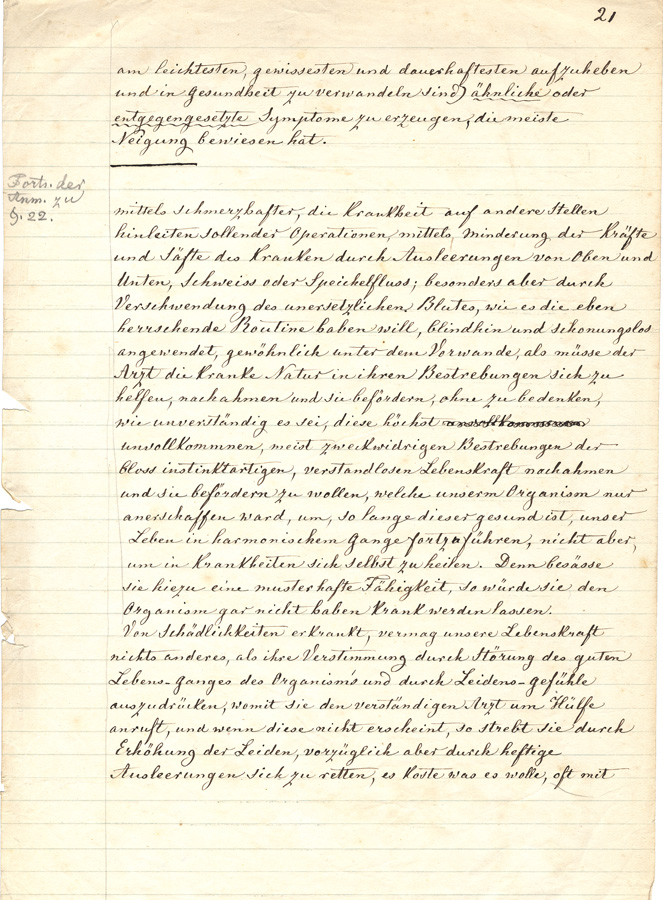 21
am leichtesten, gewissesten und dauerhaftesten aufzuheben
und in Gesundheit zu verwandeln sind) ähnliche oder
entgegengesetzte Symptome zu erzeugen, die meiste
Neigung bewiesen hat.
Forts. der
Anm. zu
§. 22.
mittels schmerzhafter, die Krankheit auf andere Stellen
hinleiten sollender Operationen, mittels Minderung der Kräfte
und Säfte des Kranken durch Ausleerungen von Oben und
Unten, Schweiss oder Speichelfluss; besonders aber durch
Verschwendung des unersetzlichen Blutes, wie es die eben
herrschende Routine haben will, blindhin und schonungslos
angewendet, gewöhnlich unter dem Vorwande, als müsse der
Arzt die kranke Natur in ihren Bestrebungen sich zu
helfen, nachahmen und sie befördern, ohne zu bedenken,
wie unverständig es sei, diese höchst unvollkommenen
unvollkommnen, meist zweckwidrigen Bestrebungen der
bloss instinktartigen, verstandlosen Lebenskraft nachahmen
und sie befördern zu wollen, welche unserm Organism nur
anerschaffen ward, um, so lange dieser gesund ist, unser
Leben in harmonischem Gange fortzuführen, nicht aber,
um in Krankheiten sich selbst zu heilen. Denn besässe
sie hiezu eine musterhafte Fähigkeit, so würde sie den
Organism gar nicht haben krank werden lassen.
Von Schädlichkeiten erkrankt, vermag unsere Lebenskraft
nichts anderes, als ihre Verstimmung durch Störung des guten
Lebens-Ganges des Organism's und durch Leidens-Gefühle
auszudrücken, womit sie den verständigen Arzt um Hülfe
anruft, und wenn diese nicht erscheint, so strebt sie durch
Erhöhung der Leiden, vorzüglich aber durch heftige
Ausleerungen sich zu retten, es koste was es wolle, oft mit